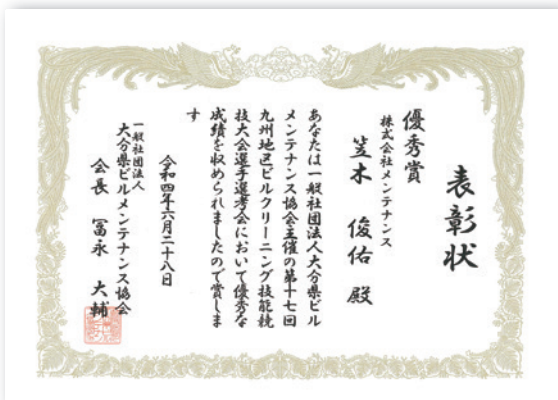 表彰状
優秀賞
株式会社メンテナンス
笠木 俊佑 殿
あなたは一般社団法人大分県ビル
メンテナンス協会主催の第十七回
九州地区ビルクリーニング技能競
技大会選手選考会において優秀な
成績を収められましたので賞しま
す
令和四年六月二十八日
一般社団法人
大分県ビルメンテナンス協会
会長 冨永 大輔